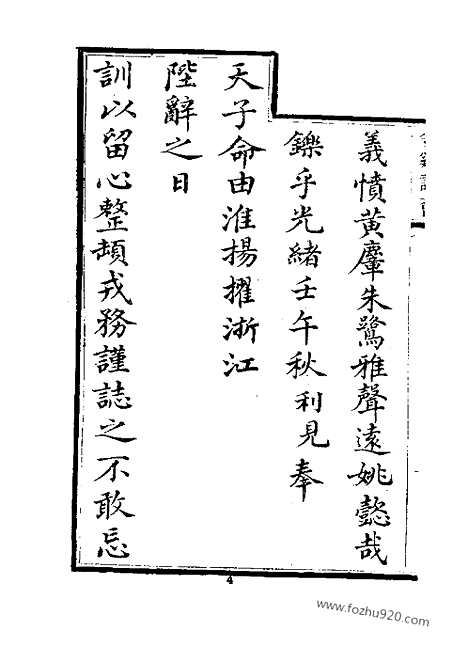 義憤黃麞朱鷺雅聲遠姚懿哉
鑠乎光緒壬午秋利見奉
天子命由淮揚擢浙江
陛辭之日
訓以留心整頓戎務謹誌之不敢忘
4
www.fozhu920.com